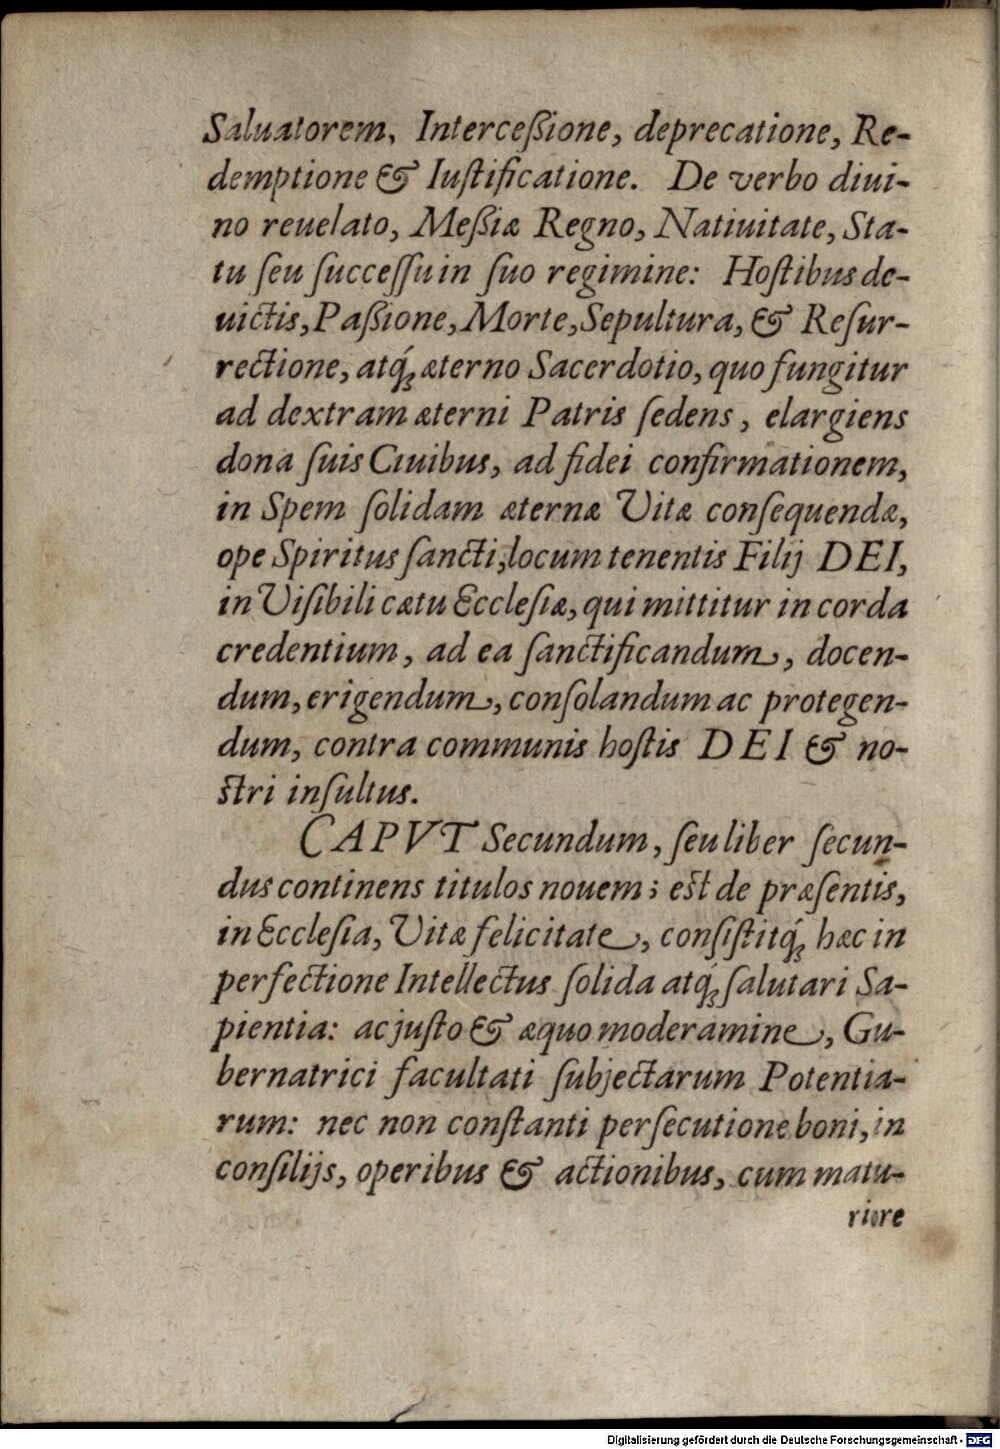 Saluatorem, Interceßione, deprecatione, Re-
demptione & Iuſtificatione. De verbo diui-
no reuelato, Meßiæ Regno, Natiuitate, Sta-
tu ſeu ſucceſſu in ſuo regimine: Hoſtibus de-
uictis, Paßione, Morte, Sepultura, & Reſur-
rectione, atq́ꝫ æterno Sacerdotio, quo fungitur
ad dextram æterni Patris ſedens, elargiens
dona ſuis Ciuibus, ad fidei confirmationem,
in Spem ſolidam æternæ Vitæ conſequendæ,
ope Spiritus ſancti, locum tenentis Filij DEI,
in Viſibili cætu Eccleſiæ, qui mittitur in corda
credentium, ad ea ſanctificandum, docen-
dum, erigendum, conſolandum ac protegen-
dum, contra communis hoſtis DEI & no-
ſtri inſultus.
CAPVT Secundum, ſeu liber ſecun-
dus continens titulos nouem; eſt de præſentis,
in Eccleſia, Vitæ felicitate, conſiſtitq́ꝫ hæc in
perfectione Intellectus ſolida atq́ꝫ ſalutari Sa-
pientia: ac juſto & æquo moderamine, Gu-
bernatrici facultati ſubjectarum Potentia-
rum: nec non conſtanti perſecutione boni, in
conſilijs, operibus & actionibus, cum matu-
riore
Digitalisierung gefördert durch die Deutsche Forschungsgemeinschaft - DFG